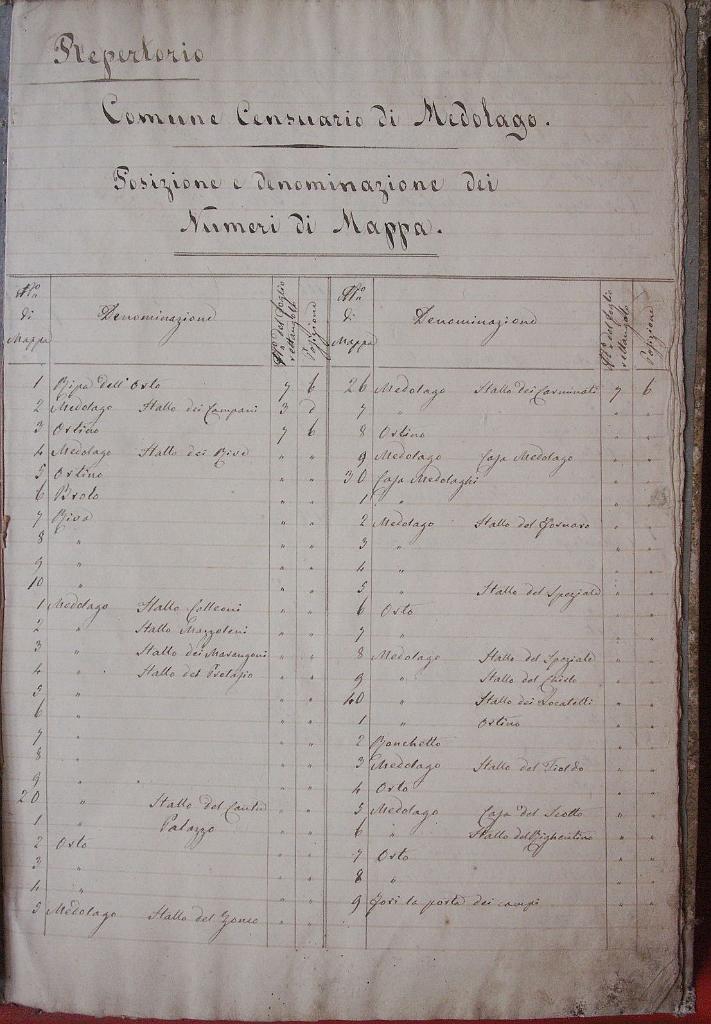 Repertorio
Comune Censuario di Medolago.
Posizione e denominazione dei
Numeri di Mappa.
N.o di Mappa Denominazione N.o del foglio rettangolo Posizione N.o di Mappa Denominazione N.o del foglio rettangolo Posizione
1 Ripa dell'Orto 7 b
2 Medolago Stallo dei Campani 3 d
3 Ortino 7 b
4 Medolago Stallo dei Riva " "
5 Ortino " "
6 Brolo " "
7 Riva " "
8 " " "
9 " " "
10 " " "
1 Medolago Stallo Colleoni " "
2 " Stallo Mazzoleni " "
3 " Stallo dei Marangoni " "
4 " Stallo del " "
5 " " "
6 " " "
7 " " "
8 " " "
9 " " "
20 " Stallo del " "
1 " Palazzo " "
2 Orto " "
3 " " "
4 " " "
5 Medolago Stallo del " "
26 Medolago Stallo dei Carminati 7 b
7 " " "
8 Ortino " "
9 Medolago Casa Medolago " "
30 Casa Medolaghi " "
1 " " "
2 Medolago Stallo del Fornaro " "
3 " " "
4 " " "
5 " Stallo del Speziale " "
6 Orto " "
7 " " "
8 Medolago Stallo del Speziale " "
9 " Stallo del " "
40 " Stallo dei Locatelli " "
1 " Ortino " "
2 Ronchetto " "
3 Medolago Stallo del " "
4 Orto " "
5 Medolago Casa del Scotto " "
6 " Stallo del Righentino " "
7 Orto " "
8 " " "
9 la porta dei campi " "